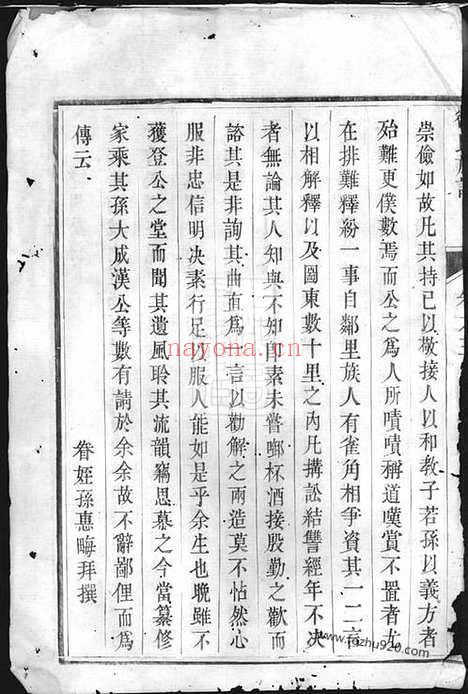 崇儉如故凡其持已以敬接人以和教子若孫以義方者
殆難更僕數焉而公之為人所嘖嘖稱道嘆賞不置者尤
在排難釋紛一事自鄰里族人有雀角相爭資其一二言
以相解釋以及圖東數十里之內凡搆訟結讐經年不決
者無論其人知與不知即素未嘗啣杯酒接殷勤之歡而
諮其是非詢其曲直為一言以勸解之兩造莫不怗然心
服非忠信明决素行足以服人能如是乎余生也晚雖不
獲登公之堂而聞其遺風聆其流韻竊思慕之今當纂修
家乘其孫大成漢公等數有請於余余故不辭鄙俚而為
傳云
眷姪孫惠晦拜撰
nayona.cn
www.fozhu920.com